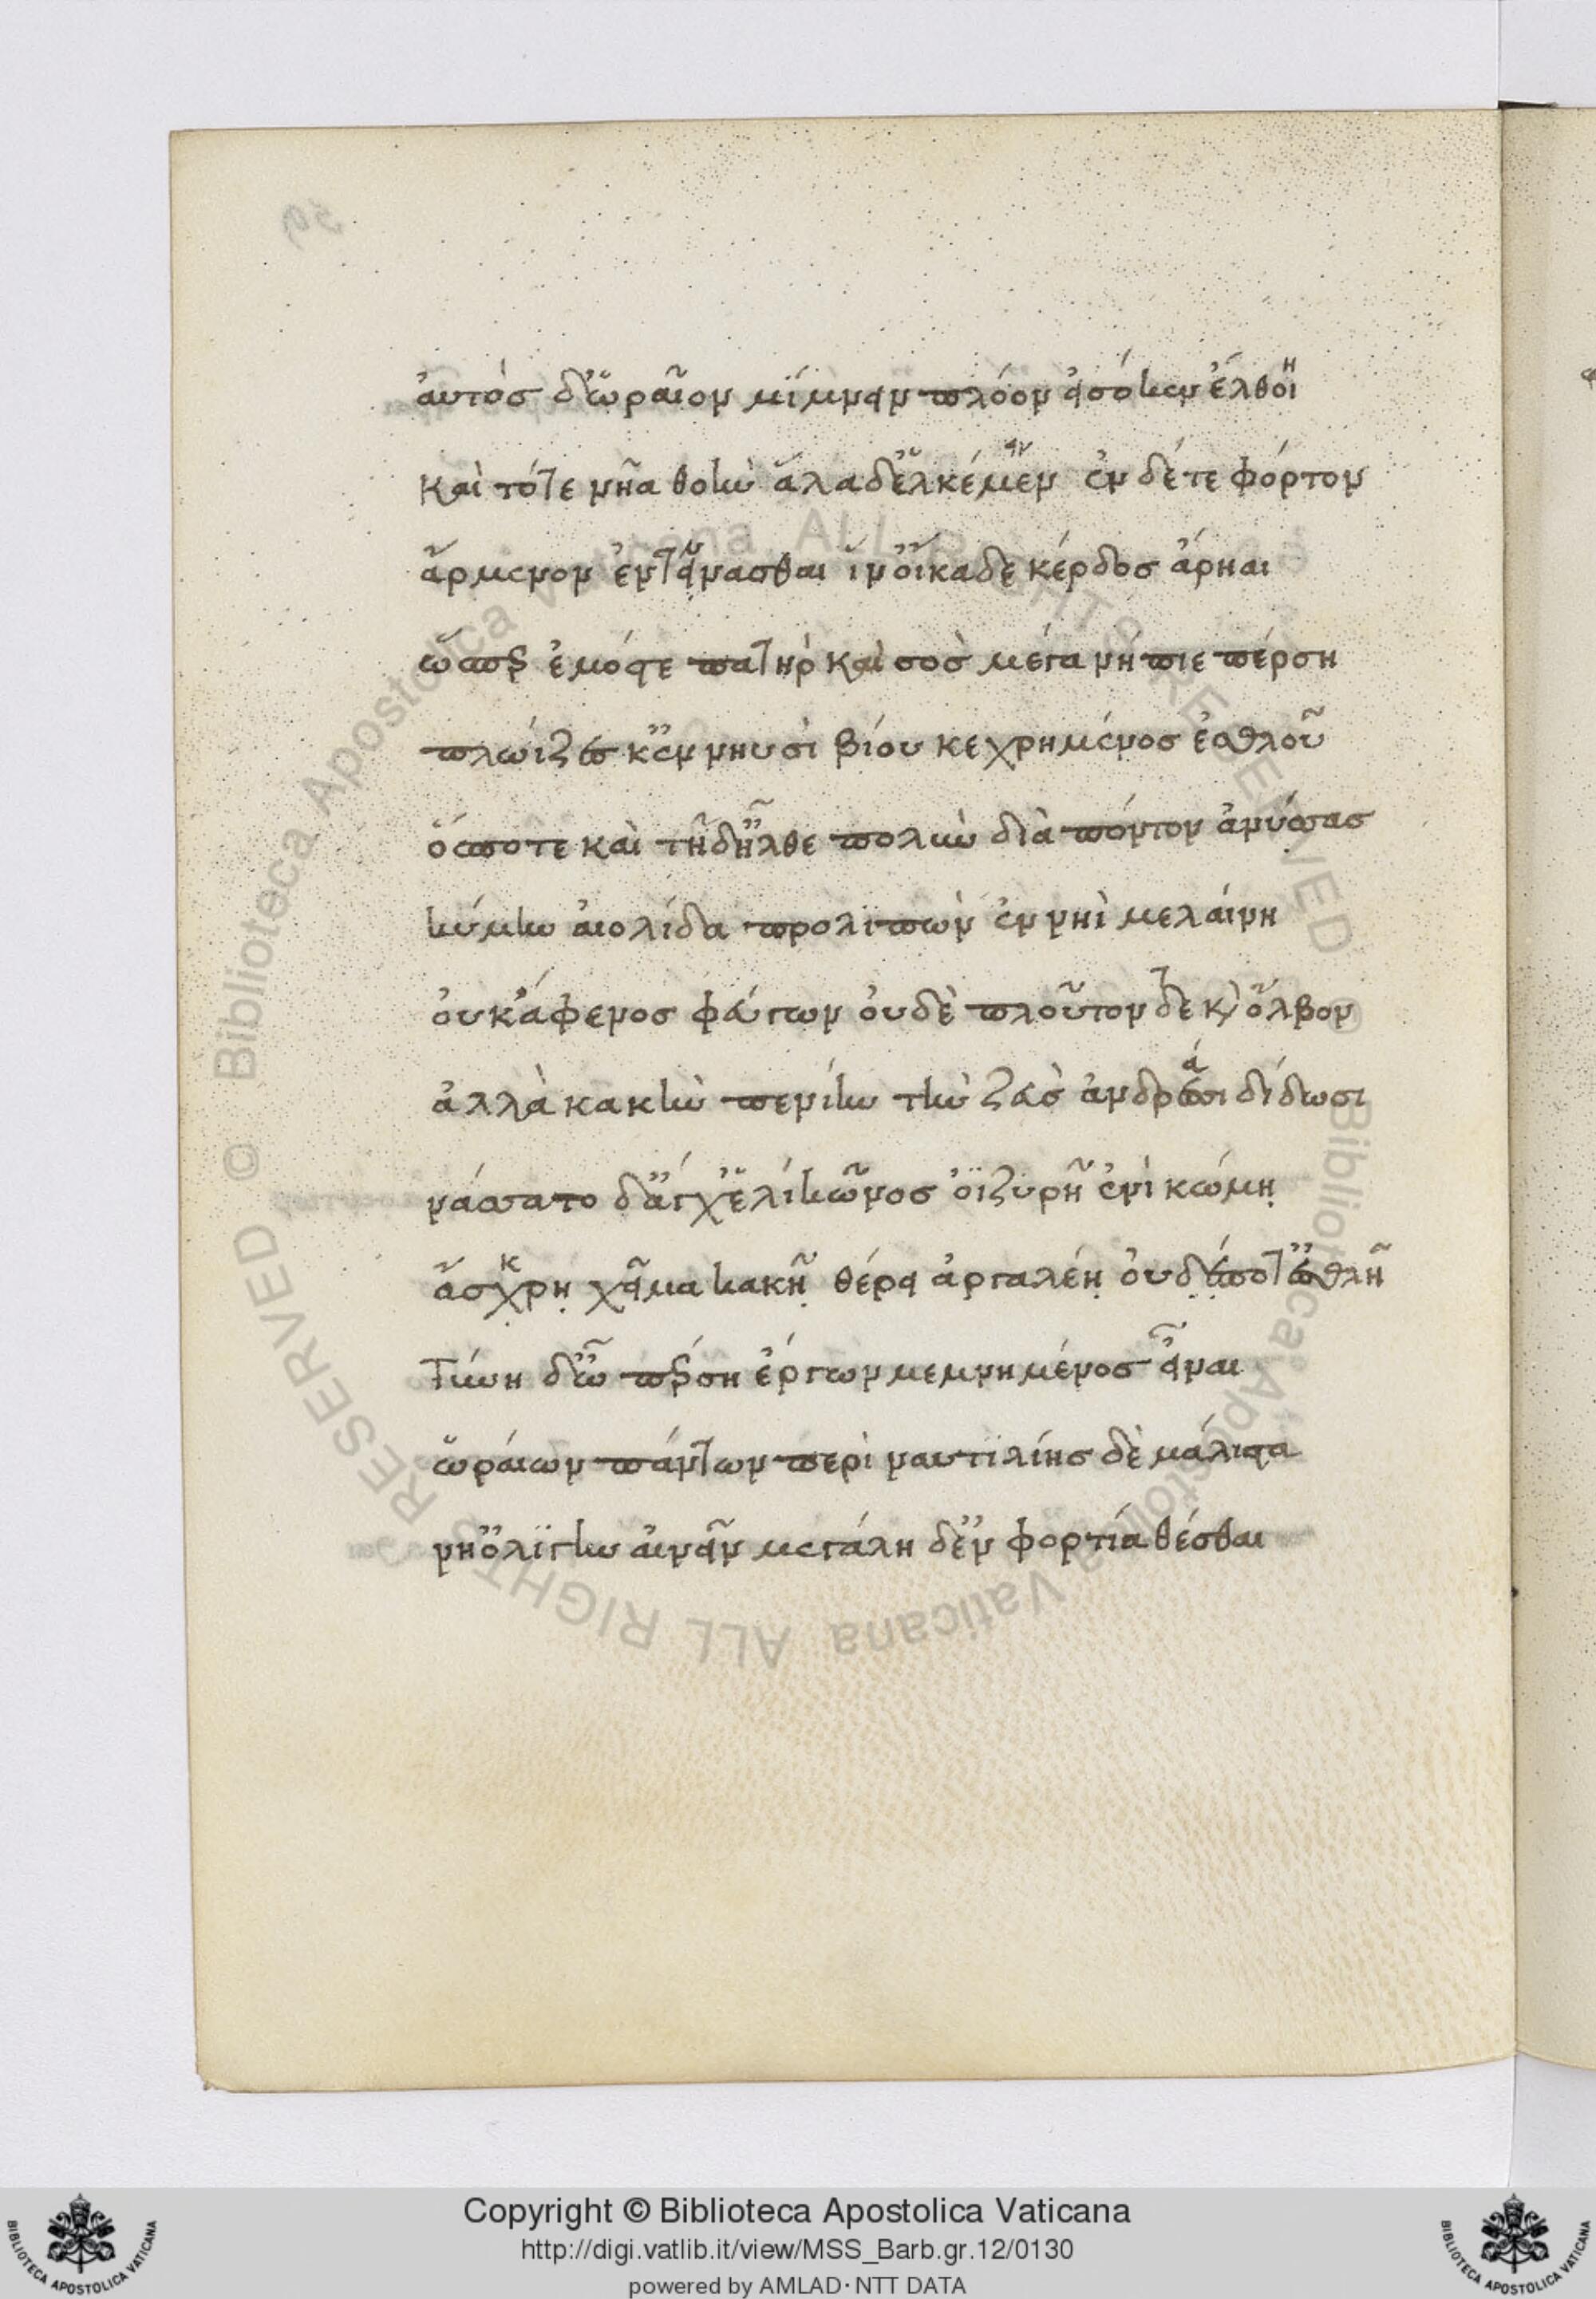 αὐτὸς δ' ὡραῖον μίμνειν πλόον εἰσόκεν ἔλθοι
καὶ τότε νῆα θοὴν ἅλα δ' ἑλκέμεν ἐν δέ τε φόρτον
ἄρμενον ἐντείνασθαι ἵν' οἴκαδε κέρδος ἄρηαι
ὥσπερ ἐμός τε πατὴρ καὶ σὸς μέγα νήπιε πέρση
πλωίζεσκ' ἐν νηυσὶ βίου κεχρημένος ἐσθλοῦ
ὅς ποτε καὶ τῆδ' ἦλθε πολὺν διὰ πόντον ἀνύσσας
κύμην αἰολίδα προλιπὼν ἐν νηὶ μελαίνη
οὐκ ἄφενος φεύγων οὐδὲ πλοῦτόν τε καὶ ὄλβον
ἀλλὰ κακὴν πενίην τὴν ζεὺς ἄνδρεσσι δίδωσι
νάσσατο δ' ἄγχ' ἑλικῶνος ὀϊζυρῆ ἐνὶ κώμῃ
ἄσχρῃ χεῖμα κακῇ θέρει ἀργαλέῃ οὐδέ ποτ' ἐσθλῆ
Τύνη δ' ὦ πέρση ἔργων μεμνημένος εἶναι
ὡραίων πάντων περὶ ναυτιλίης δὲ μάλιστα
νῆ' ὀλίγην αἰνεῖν μεγάλη δ' ἐν φορτία θέσθαι
Copyright © Biblioteca Apostolica Vaticana
http://digi.vatlib.it/view/MSS_Barb.gr.12/0130
powered by AMLAD·NTT DATA